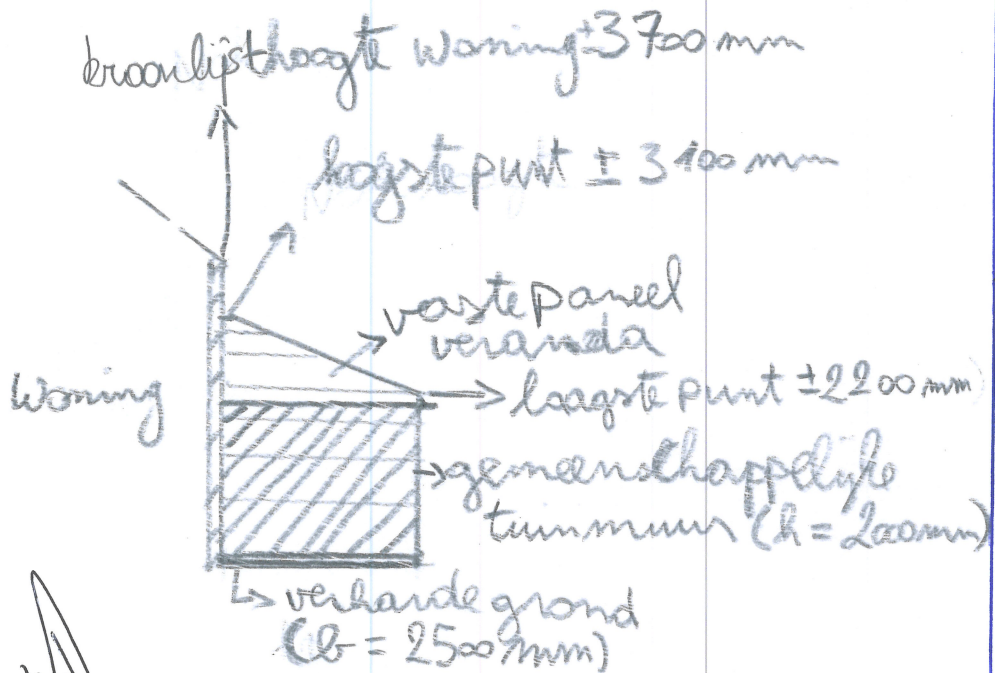 kroonlijsthoogte woning ±3700 mm
hoogste punt ± 3100 mm
vaste paneel
veranda
Woning
laagste punt ±2200 mm
gemeenschappelijke
tuinmuur (h = 2000mm)
verharde grond
(b = 2500 mm)